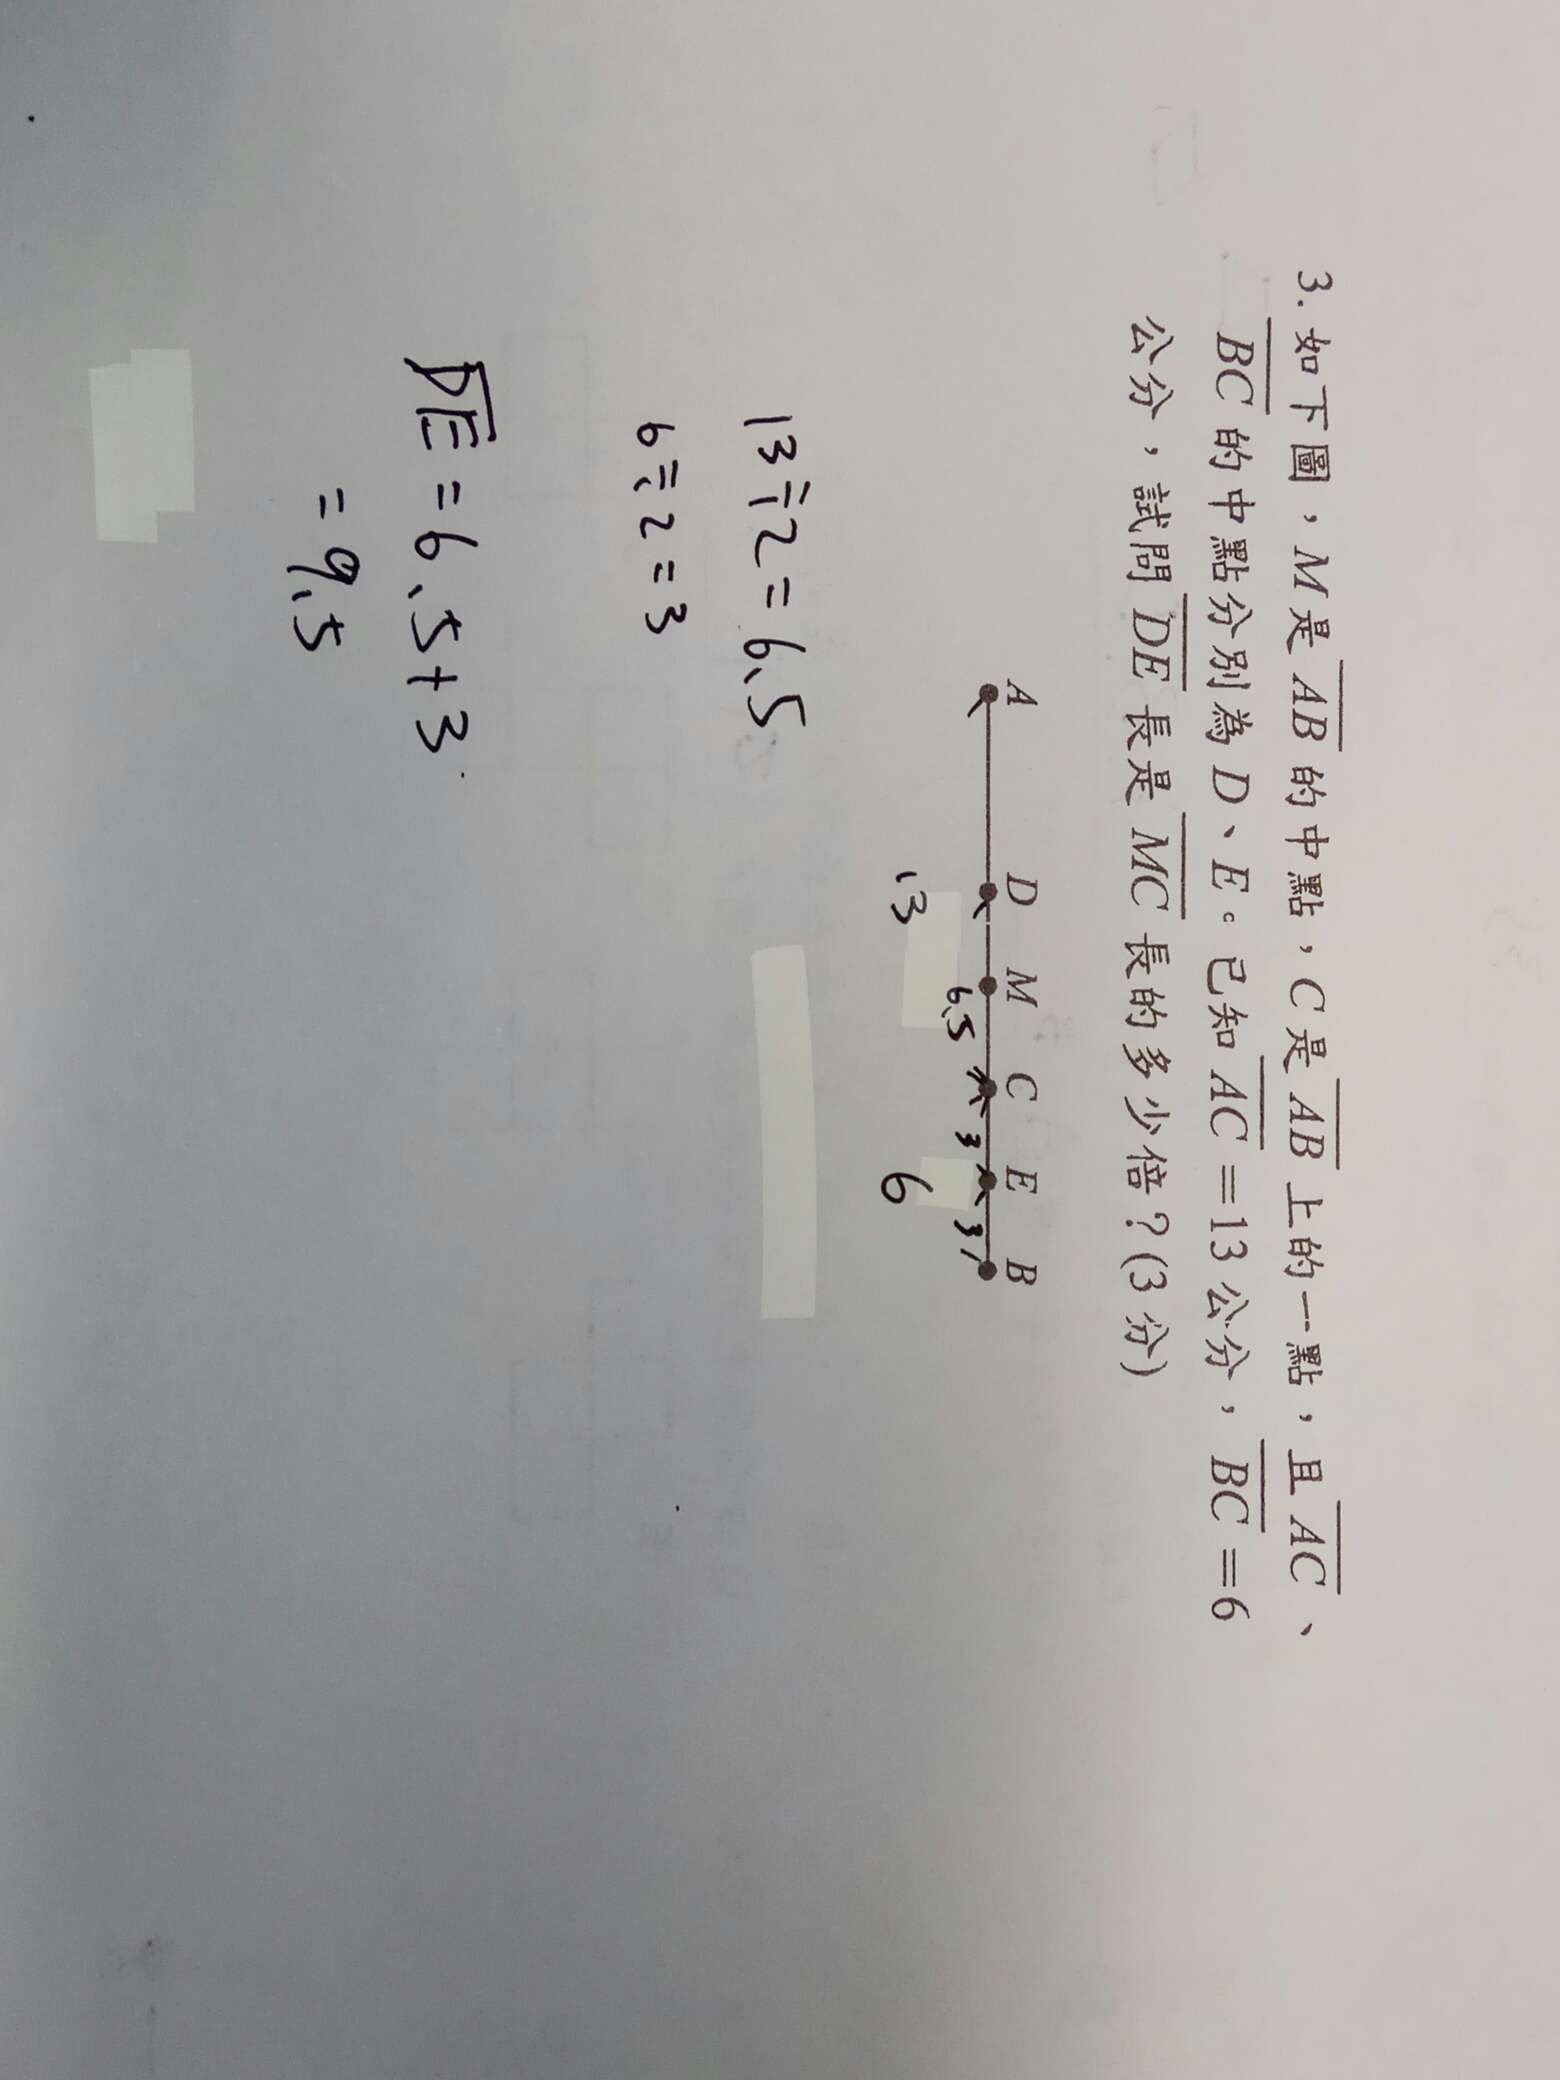 3. 如下圖，M是 AB 的中點，C是 AB 上的一點，且 AC、
BC 的中點分別為 D、E。已知 AC＝13公分，BC＝6
公分，試問 DE 長是 MC 長的多少倍？(3分)
A D M C E B
6.5 3 3
13 6
13÷2=6.5
6÷2=3
DE=6.5+3
=9.5